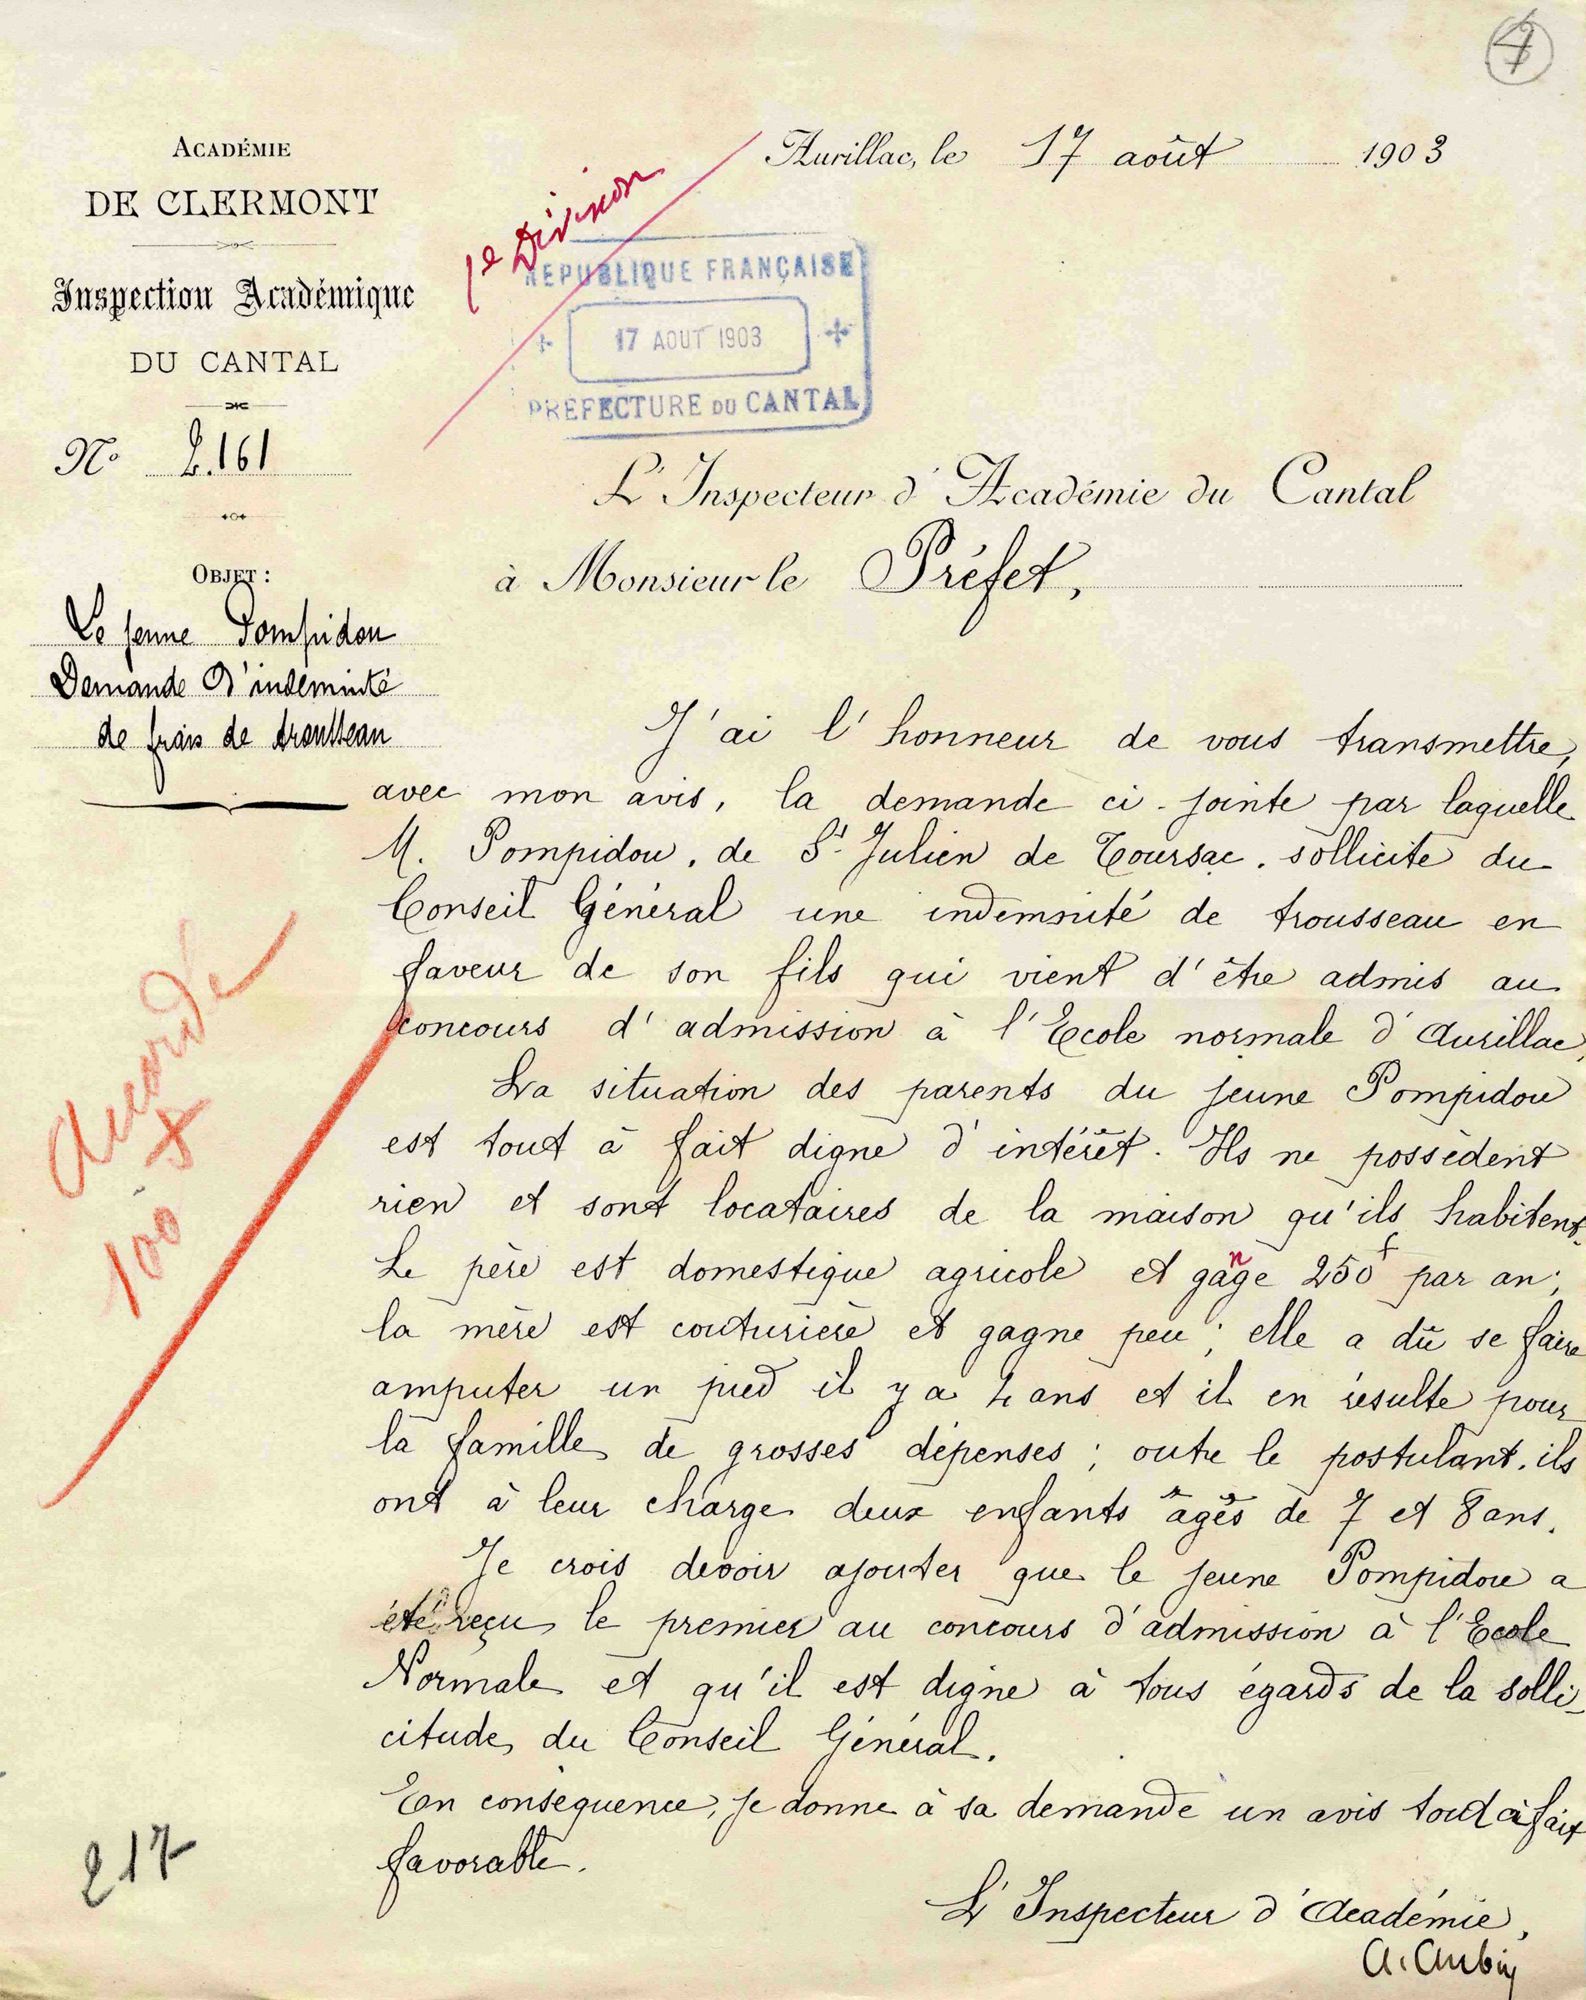 4
ACADÉMIE
DE CLERMONT
Inspection Académique
DU CANTAL
N° 2.161
OBJET :
Le jeune Pompidou
Demande d'indemnité
de frais de trousseau
Aurillac, le 17 août 1903
1e Division
REPUBLIQUE FRANÇAISE
17 AOUT 1903
PREFECTURE DU CANTAL
L'Inspecteur d'Académie du Cantal
à Monsieur le Préfet,
J'ai l'honneur de vous transmettre,
avec mon avis, la demande ci-jointe par laquelle
M. Pompidou, de St Julien de Toursac, sollicite du
Conseil Général une indemnité de trousseau en
faveur de son fils qui vient d'être admis au
concours d'admission à l'Ecole normale d'Aurillac,
La situation des parents du jeune Pompidou
est tout à fait digne d'intérêt. Ils ne possèdent
rien et sont locataires de la maison qu'ils habitent.
Le père est domestique agricole et gagne 250f par an;
la mère est couturière et gagne peu; elle a dû se faire
amputer un pied il y a 4 ans et il en résulte pour
la famille de grosses dépenses; outre le postulant, ils
ont à leur charge deux enfants âgés de 7 et 8 ans.
Je crois devoir ajouter que le jeune Pompidou a
été reçu le premier au concours d'admission à l'Ecole
Normale et qu'il est digne à tous égards de la solli-
citude du Conseil Général.
En conséquence, je donne à sa demande un avis tout à fait
favorable.
L'Inspecteur d'Académie,
A. Aubin
Accordé
100 f
217